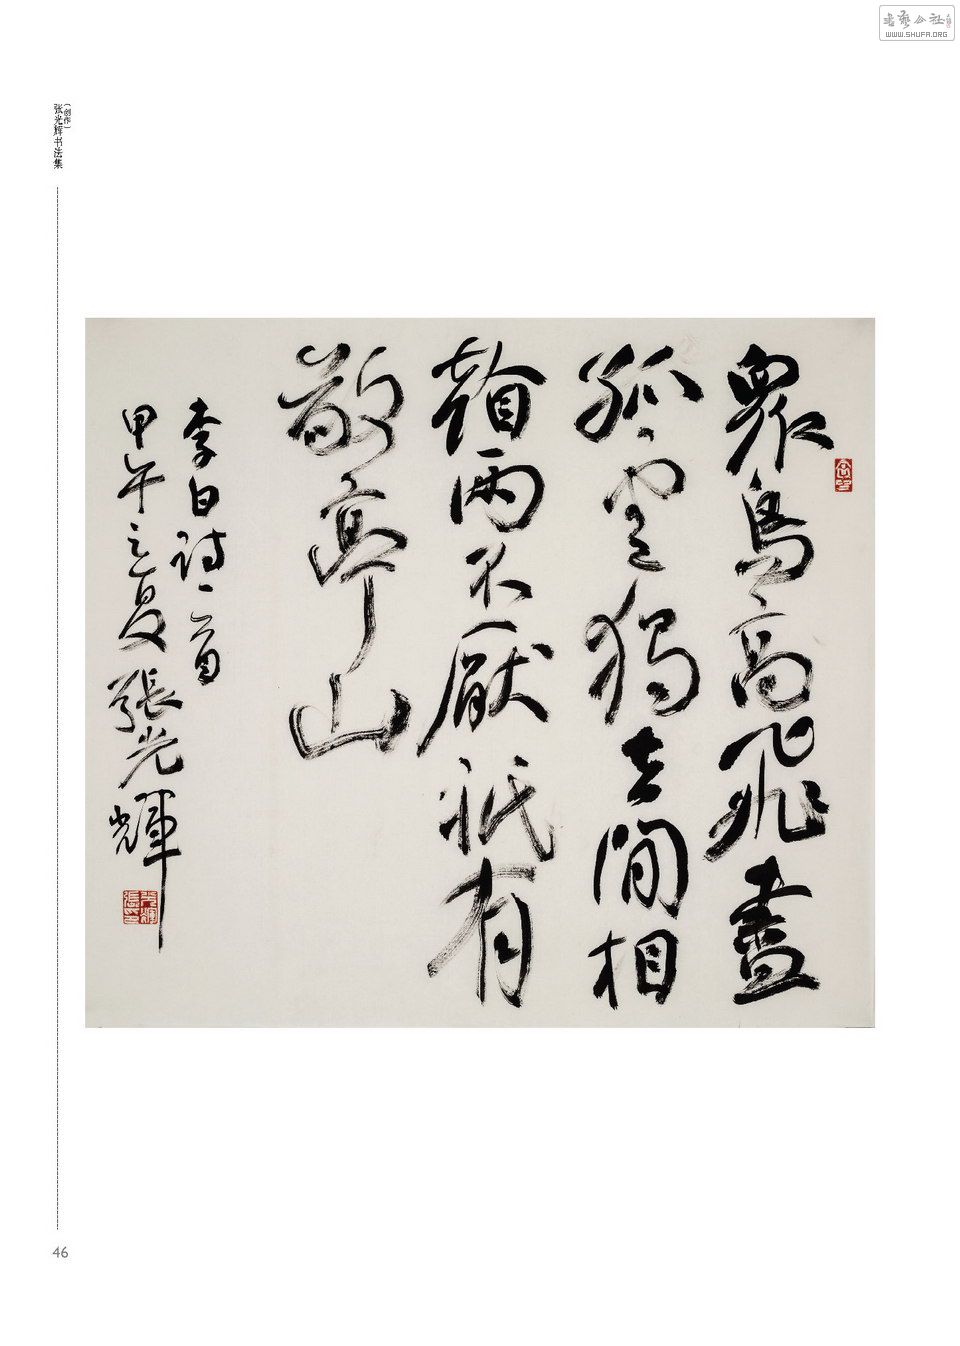 書藝公社
WWW.SHUFA.ORG
张光辉书法集
（创作）
眾鳥高飛盡
孤雲獨去閒相
看兩不厭祇有
敬亭山
李白詩一首
甲午之夏張光輝
46